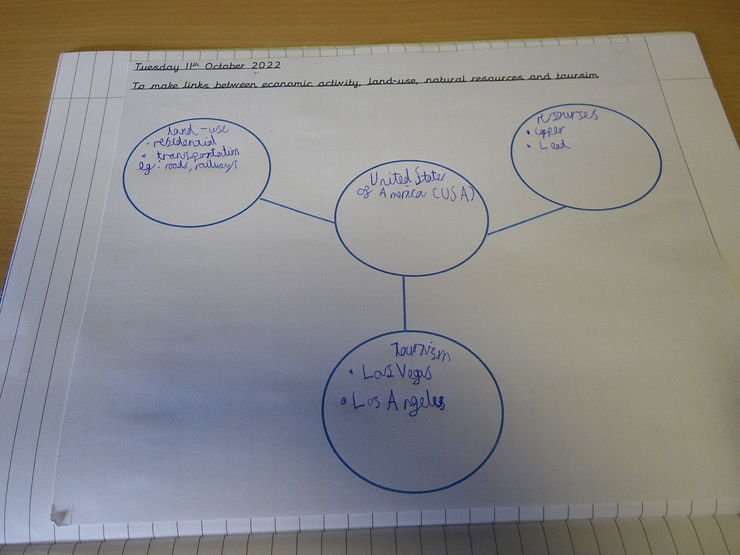 Tuesday 11th October 2022
To make links between economic activity, land-use, natural resources and toursim
land-use
• residential
• transportation
eg: roads, railways
United States
of America (USA)
resourses
• Copper
• Lead
tourism
• Las Vegas
• Los Angeles